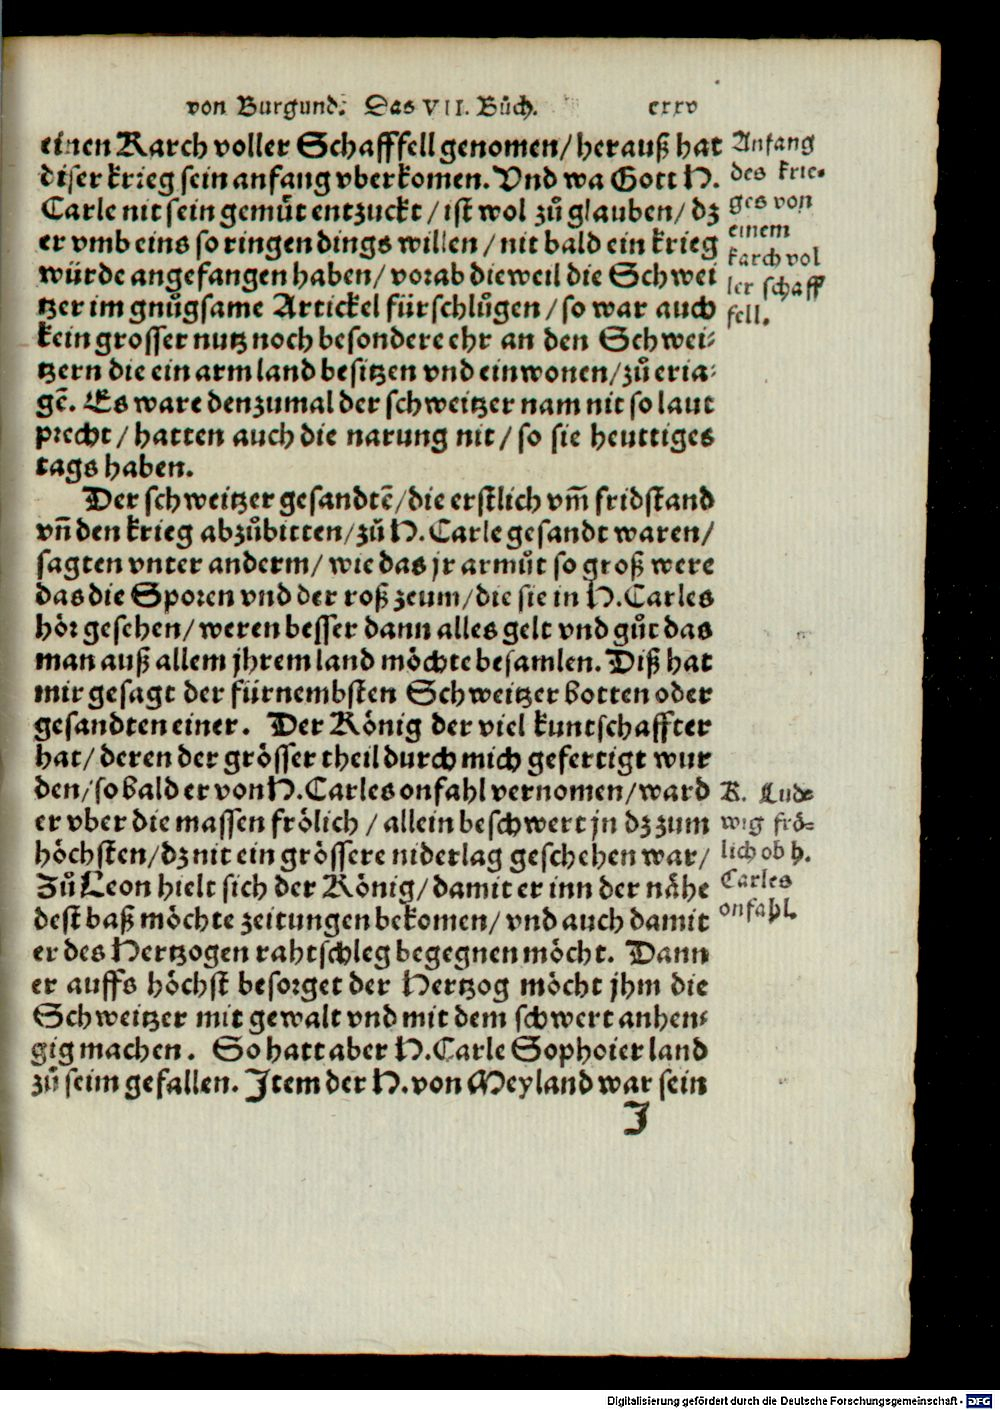 von Burgund. Das VII. Bůch. cxxv
einen Karch voller Schafffell genomen/ herauß hat
diser krieg sein anfang vberkomen. Vnd wa Gott H.
Carle nit sein gemůt entzuckt / ist wol zů glauben/ dz
er vmb eins so ringen dings willen / nit bald ein krieg
würde angefangen haben/ vorab dieweil die Schwei
tzer im gnůgsame Artickel fürschlůgen / so war auch
kein grosser nutz noch besondere ehr an den Schwei⸗
tzern die ein arm land besitzen vnd einwonen/ zů eria⸗
gē. Es ware denzumal der schweitzer nam nit so laut
precht / hatten auch die narung nit / so sie heuttiges
tags haben.
Der schweitzer gesandtē/ die erstlich vm̃ fridstand
vñ den krieg abzůbitten/ zů H. Carle gesandt waren/
sagten vnter anderm/ wie das jr armůt so groß were
das die Sporen vnd der roß zeum/ die sie in H. Carles
hör gesehen/ weren besser dann alles gelt vnd gůt das
man auß allem jhrem land möchte besamlen. Diß hat
mir gesagt der fürnembsten Schweitzer botten oder
gesandten einer. Der König der viel kuntschaffter
hat/ deren der grösser theil durch mich gefertigt wur
den/ so bald er von H. Carles onfahl vernomen/ ward
er vber die massen frölich / allein beschwert jn dz zum
höchsten/ dz nit ein grössere niderlag geschehen war/
Zů Leon hielt sich der König/ damit er inn der nähe
dest baß möchte zeitungen bekomen/ vnd auch damit
er des Hertzogen rahtschleg begegnen möcht. Dann
er auffs höchst besorget der Hertzog möcht jhm die
Schweitzer mit gewalt vnd mit dem schwert anhen⸗
gig machen. So hatt aber H. Carle Sophoier land
zů seim gefallen. Item der H. von Meyland war sein
I
Anfang
des krie⸗
ges von
einem
karch vol
ler schaff
fell.
K. Lud⸗
wig frö⸗
lich ob h.
Carles
onfahl.
Digitalisierung gefördert durch die Deutsche Forschungsgemeinschaft - DFG